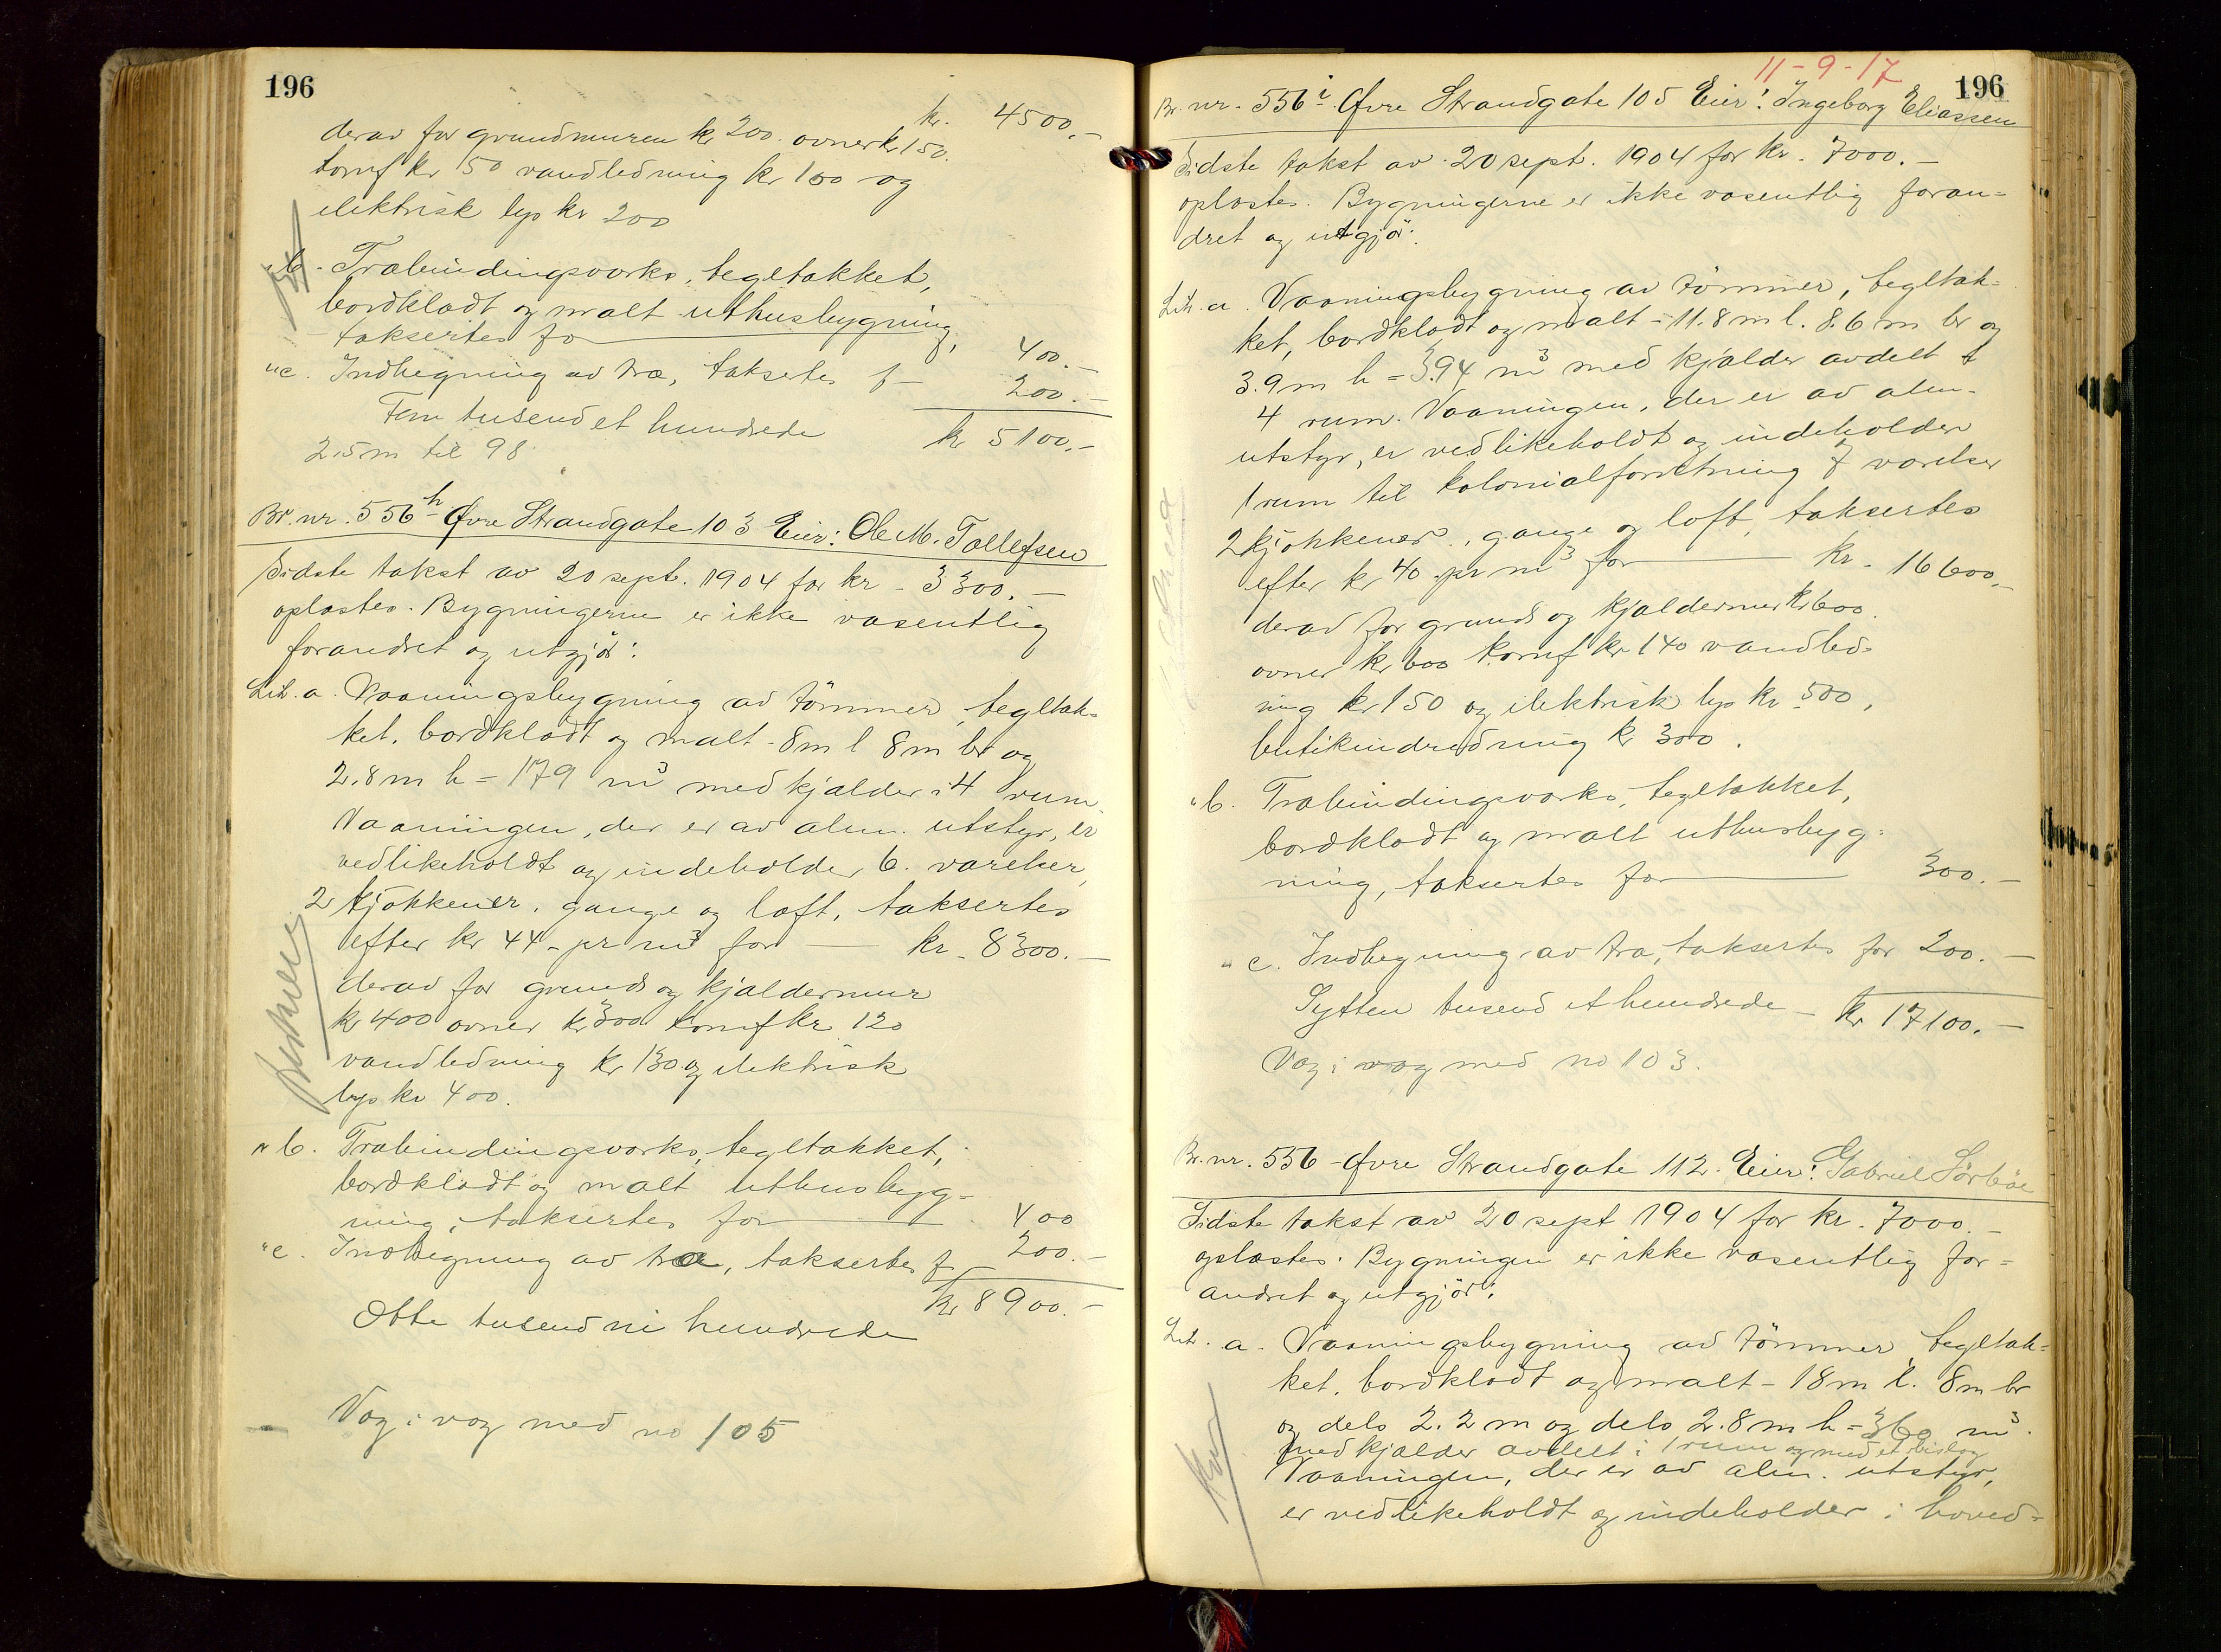 196
kr. 4500.-
derav for grundmuren kr 200. ovner kr 150.
komf kr 50 vandledning kr 100 og
elektrisk lys kr 200
" b. Træbindingsverks, tegltækket,
bordklædt og malt uthusbygning,
taksertes for 400.-
" c. Indhegning av træ, taksertes f- 200.-
Fem tusend et hundrede kr 5100.-
2.5 m til 98
Br. nr. 556 h - Øvre Strandgate 103 Eier: Ole M. Tollefsen
Sidste takst av 20 sept. 1904 for kr - 3300.-
oplæstes. Bygningerne er ikke væsentlig
forandret og utgjør:
Lit. a. Vaaningsbygning av tömmer, tegltæk-
ket, bordklædt og malt - 8 m l 8 m br og
2.8 m h = 179 m³ med kjælder i 4 rum.
Vaaningen, der er av alm. utstyr, er
vedlikeholdt og indeholder 6. værelser,
2 kjøkkener, gange og loft, taksertes
efter kr 44 - pr m³ for kr. 8300.-
derav for grund og kjældermur
kr 400 ovner kr 300 komf kr 120
vandledning kr 130 og elektrisk
lys kr 400.
" b. Træbindingsverks, tegltækket,
bordklædt og malt uthusbyg-
ning, taksertes for 400
" c. Indhegning av træ, taksertes f- 200.-
kr 8900.-
Otte tusend ni hundrede
Væg i væg med no 105
11-9-17
196
Br. nr. 556 i - Øvre Strandgate 105 Eier: Ingeborg Eliassen
Sidste takst av 20 sept. 1904 for kr. 7000.-
oplæstes. Bygningerne er ikke væsentlig foran-
dret og utgjør:
Lit. a. Vaaningsbygning av tömmer, tegltæk-
ket, bordklædt og malt - 11.8 m l. 8.6 m br og
3.9 m h = 394 m³ med kjælder avdelt i
4 rum. Vaaningen, der er av alm.
utstyr, er vedlikeholdt og indeholder
1 rum til kolonialforretning 7 værelser
2 kjøkkener, gange og loft, taksertes
efter kr 40 pr m³ for kr. 16600.-
derav for grund og kjældermur kr 600
ovner kr 600 komf kr 140 vandled-
ning kr 150 og elektrisk lys kr 500,
butikindredning kr 300.
" b. Træbindingsverks, tegltækket,
bordklædt og malt uthusbyg-
ning, taksertes for 300.-
" c. Indhegning av træ, taksertes for 200.-
Sytten tusend et hundrede - kr 17100.-
Væg i væg med no 103.
Br. nr. 556 - Øvre Strandgate 112. Eier: Gabriel Sörböe
Sidste takst av 20 sept 1904 for kr. 7000.-
oplæstes. Bygningen er ikke væsentlig for-
andret og utgjör:
Lit. a. Vaaningsbygning av tömmer, tegltæk-
ket, bordklædt og malt - 18 m l. 8 m br
og dels 2.2 m og dels 2.8 m h = 360 m³.
med kjælder avdelt i 1 rum og med et bislag
Vaaningen, der er av alm. utstyr,
er vedlikeholdt og indeholder i hoved-